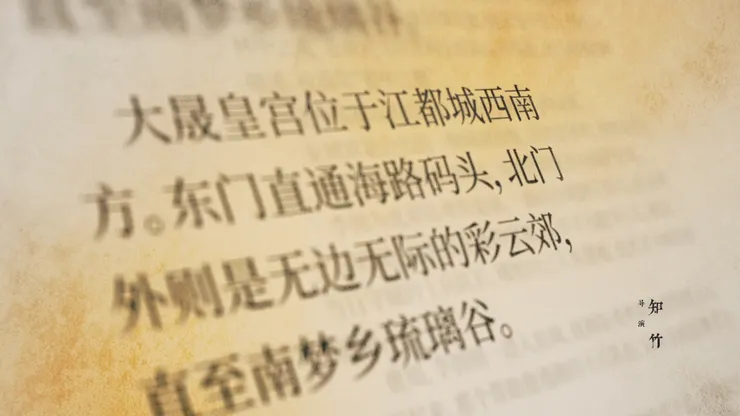 大晟皇宫位于江都城西南
方。东门直通海路码头,北门
外则是无边无际的彩云郊,
直至南梦乡琉璃谷。
导演
知竹